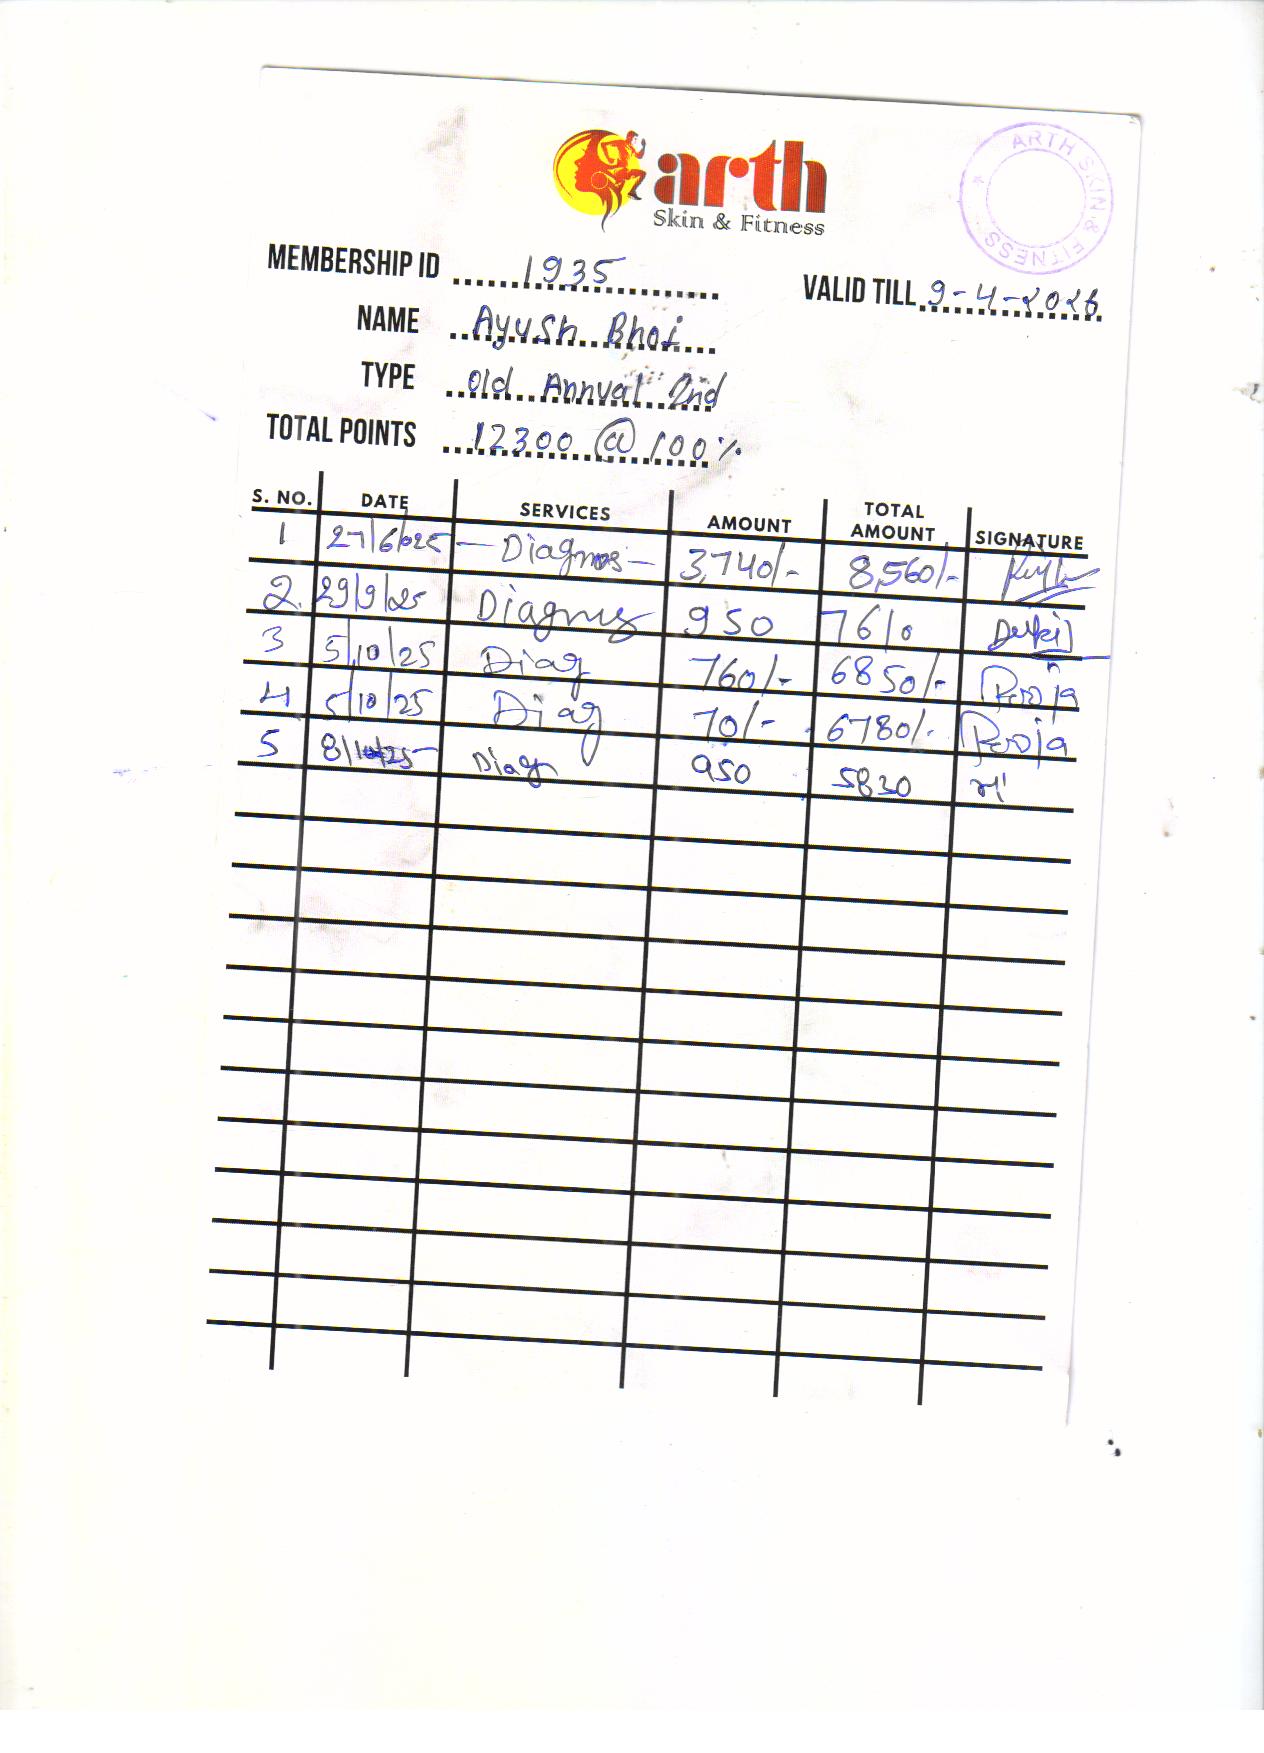 arth
Skin & Fitness
ARTH SKIN & FITNESS
MEMBERSHIP ID 1935
VALID TILL 9-4-2026
NAME Ayush Bhoi
TYPE Old Annual 2nd
TOTAL POINTS 12300 @ 100%
S. NO. DATE SERVICES AMOUNT TOTAL AMOUNT SIGNATURE
1 27/6/025 — Diagnos — 3,740/- 8,560/-
2. 29/9/25 Diagnos 950 7610
3 5/10/25 Diag 760/- 6850/- Pooja
4 5/10/25 Diag 70/- 6780/- Pooja
5 8/10/25 Diagn 950 5830